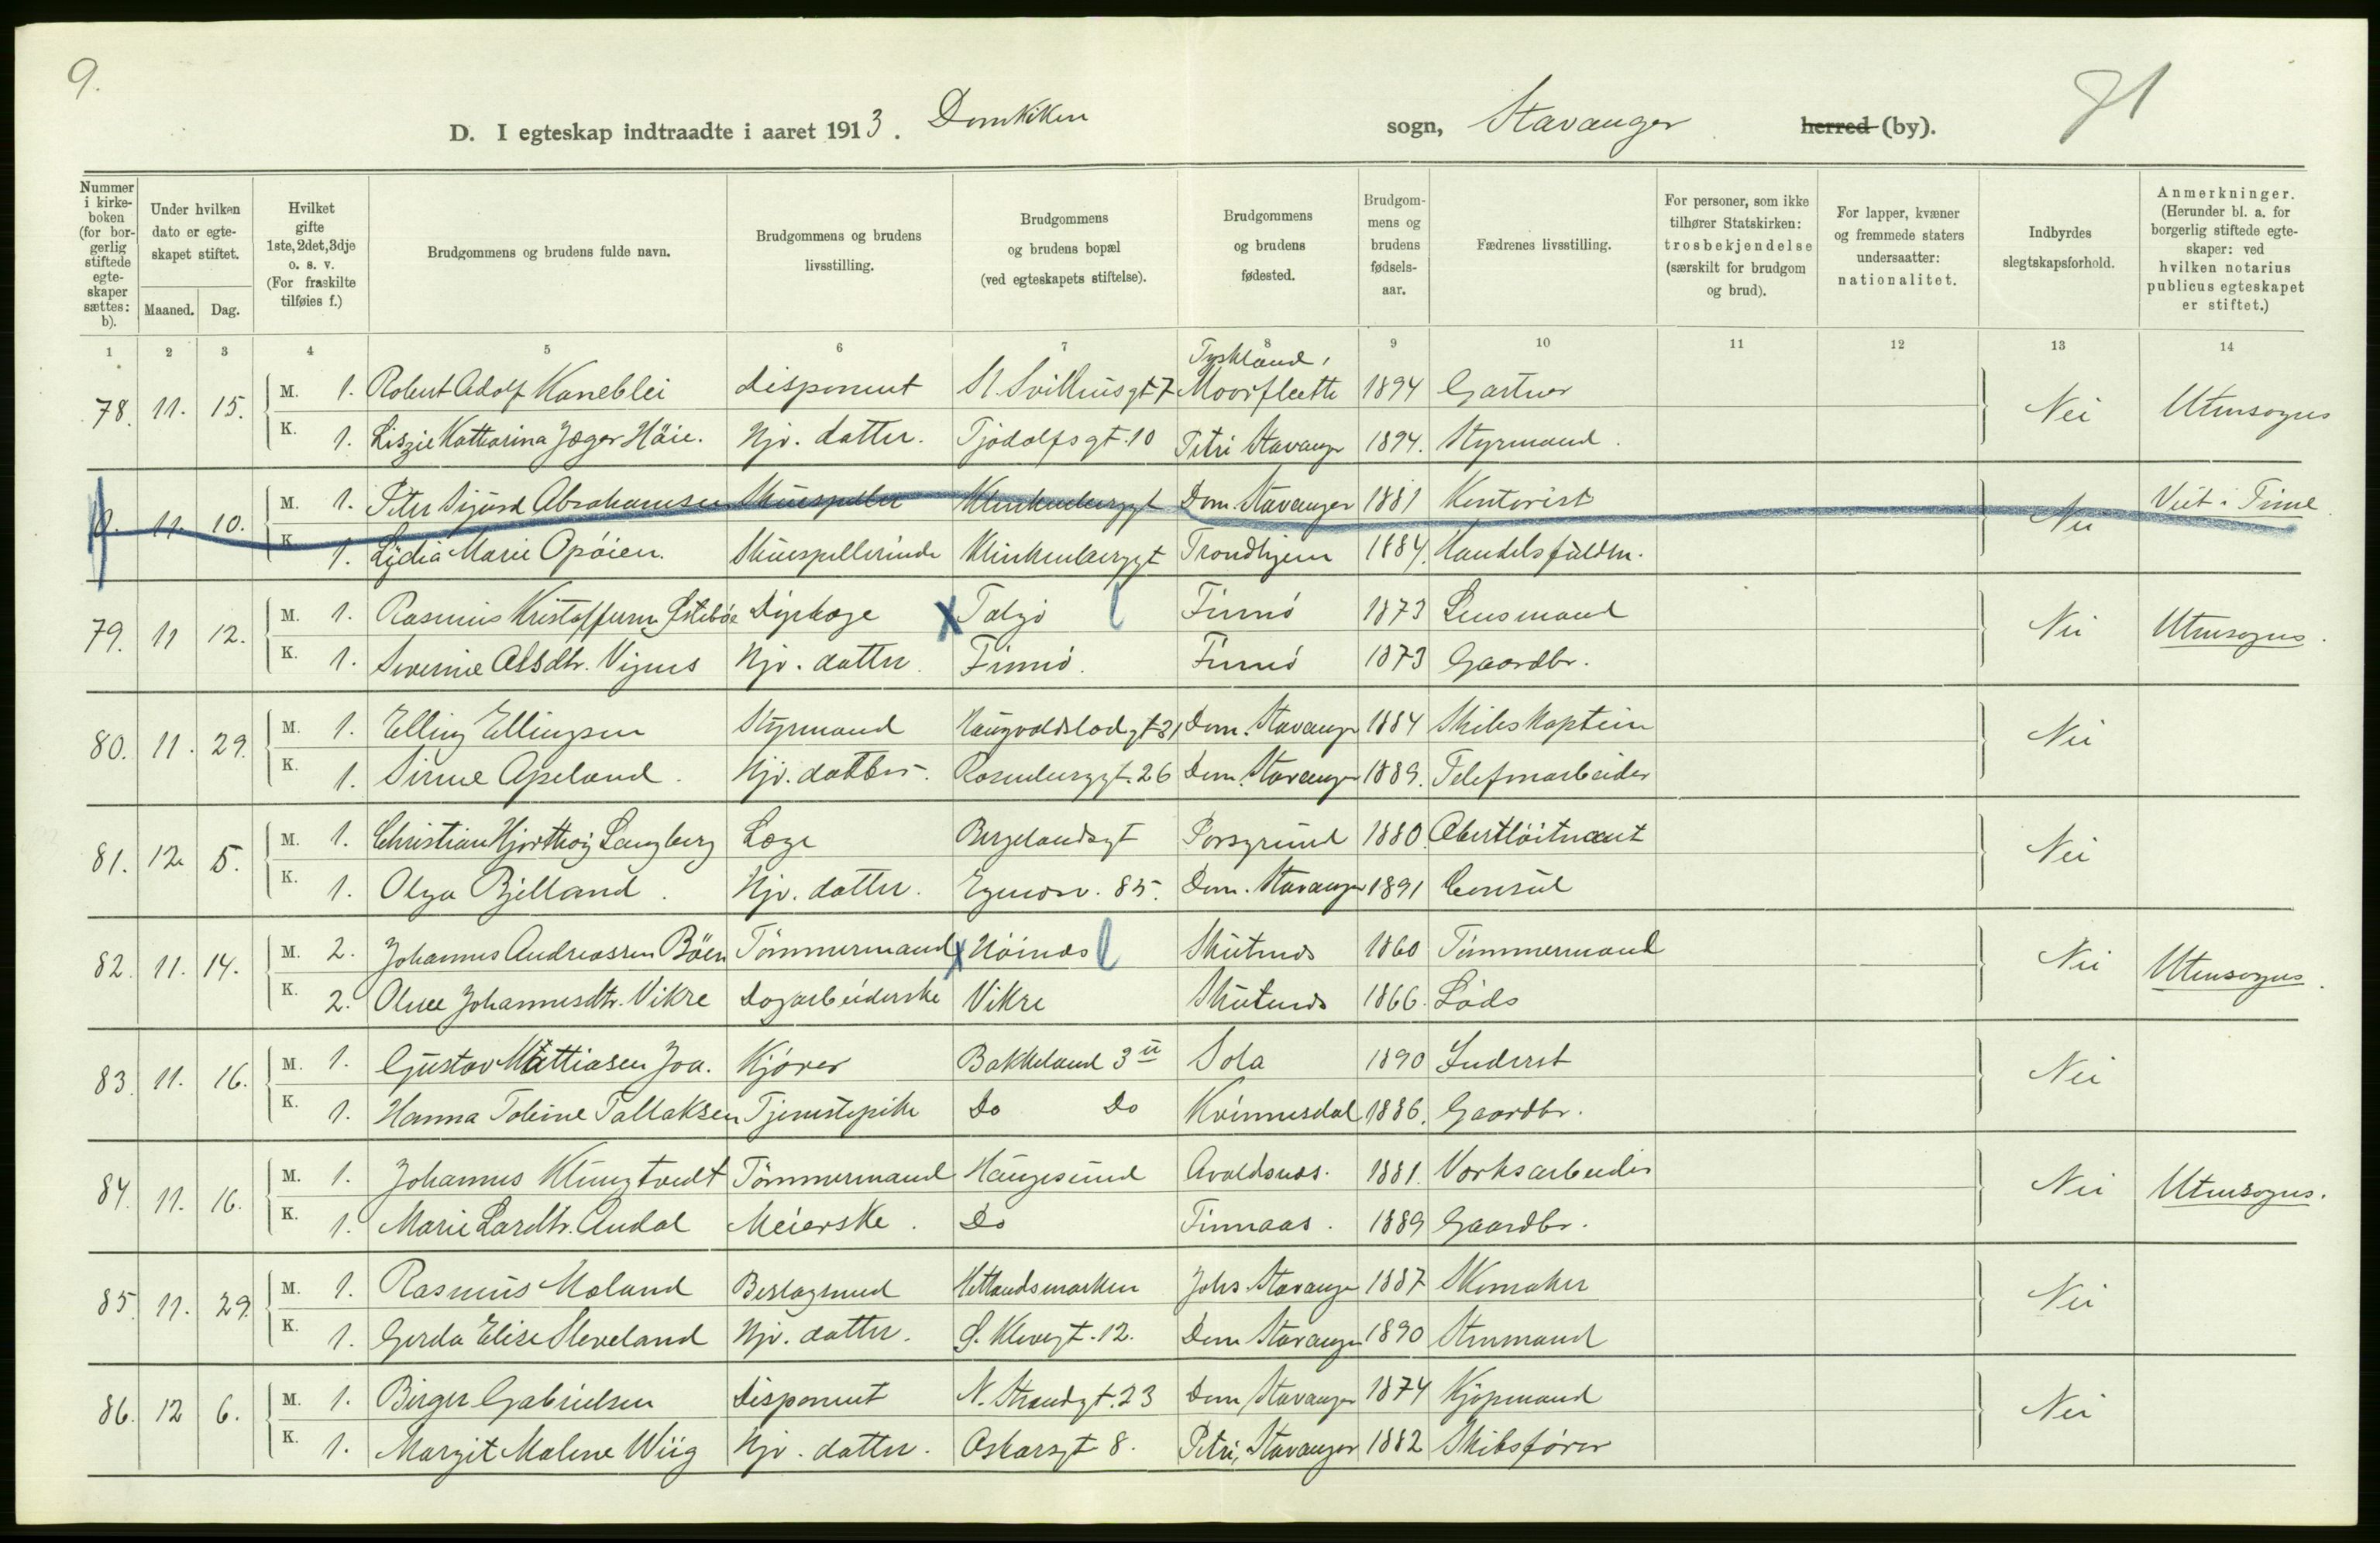 9.
D. I egteskap indtraadte i aaret 1913. Domkirken sogn, Stavanger herred (by).
Nummer i kirkeboken (for borgerlig stiftede egteskaper sættes: b).
Under hvilken dato er egteskapet stiftet.
Maaned. Dag.
Hvilket gifte 1ste, 2det, 3dje o. s. v. (For fraskilte tilføies f.)
Brudgommens og brudens fulde navn.
Brudgommens og brudens livsstilling.
Brudgommens og brudens bopæl (ved egteskapets stiftelse).
Brudgommens og brudens fødested.
Brudgommens og brudens fødselsaar.
Fædrenes livsstilling.
For personer, som ikke tilhører Statskirken: trosbekjendelse (særskilt for brudgom og brud).
For lapper, kvæner og fremmede staters undersaatter: nationalitet.
Indbyrdes slegtskapsforhold.
Anmerkninger. (Herunder bl. a. for borgerlig stiftede egteskaper: ved hvilken notarius publicus egteskapet er stiftet.)
1 2 3 4 5 6 7 8 9 10 11 12 13 14
78. 11. 15. M. 1. Robert Adolf Kaneblei disponent St. Svithunsgt 7 Tyskland, Moorfleette 1894 Gartner Nei Utensogns
K. 1. Liszie Katharina Jæger Häie. Hjv. datter. Tjodolfsgt. 10 Petri Stavanger 1894. Styrmand.
11. 10. M. 1. Peter Sigurd Abrahamsen Skuespiller Klinkenberggt Dom. Stavanger 1881 Kontorist Nei Viet i Time
K. 1. Lydia Marie Opøien. Skuespillerinde Klinkenberggt Trondhjem 1884. Handelsfuldm.
79. 11 12. M. 1. Rasmus Kristoffersen Østebøe Dyrlæge x Talgø Finnø 1873 Lensmand Nei Utensogns.
K. 1. Severine Olsdtr. Vignes Hjv. datter. Finnø. Finnø 1873 Gaardbr.
80. 11. 29. M. 1. Elling Ellingsen Styrmand Haugvaldstadgt 31 Dom. Stavanger 1884 Skibskaptein Nei
K. 1. Sirine Apeland. Hjv. datter. Rosenberggt. 26 Dom. Stavanger 1889. Telefonarbeider
81. 12. 5. M. 1. Christian Hjorthøy Langberg Læge Bergelandsgt Porsgrund 1880 Oberstløitnant Nei
K. 1. Olga Bjelland. Hjv. datter. Egnesv. 85. Dom. Stavanger 1891 Consul
82. 11. 14. M. 2. Johannes Andreassen Böen Tömmermand x Höines Skutnes 1860 Tömmermand Nei Utensogns.
K. 2. Oline Johannesdtr. Vikre Dagarbeiderske Vikre Skutenes 1866. Lods
83. 11. 16. M. 1. Gustav Mattiasen Joa. Kjører Bakkeland 3 Sola 1890 Inderst Nei
K. 1. Hanna Tobine Tallaksen Tjenestepike Do Do Kvinnesdal 1886. Gaardbr.
84. 11. 16. M. 1. Johannes Klungtvedt Tömmermand Haugesund Avaldsnes. 1881. Verksarbeider Nei Utensogns.
K. 1. Marie Larsdtr. Andal Meierske. Do Finnaas. 1889 Gaardbr.
85. 11. 29. M. 1. Rasmus Moland Beslagsmed Hetlandsmarken Johs. Stavanger 1887 Skomaker Nei
K. 1. Gerda Elise Sleveland Hjv. datter. S. Klevegt. 12. Dom Stavanger 1890 Stenmand
86. 12 6. M. 1. Birger Gabrielsen Disponent N. Strandgt. 23 Dom, Stavanger 1874 Kjøpmand Nei
K. 1. Margit Malene Wiig Hjv. datter. Oskarsgt 8. Petri, Stavanger 1882 Skibsfører